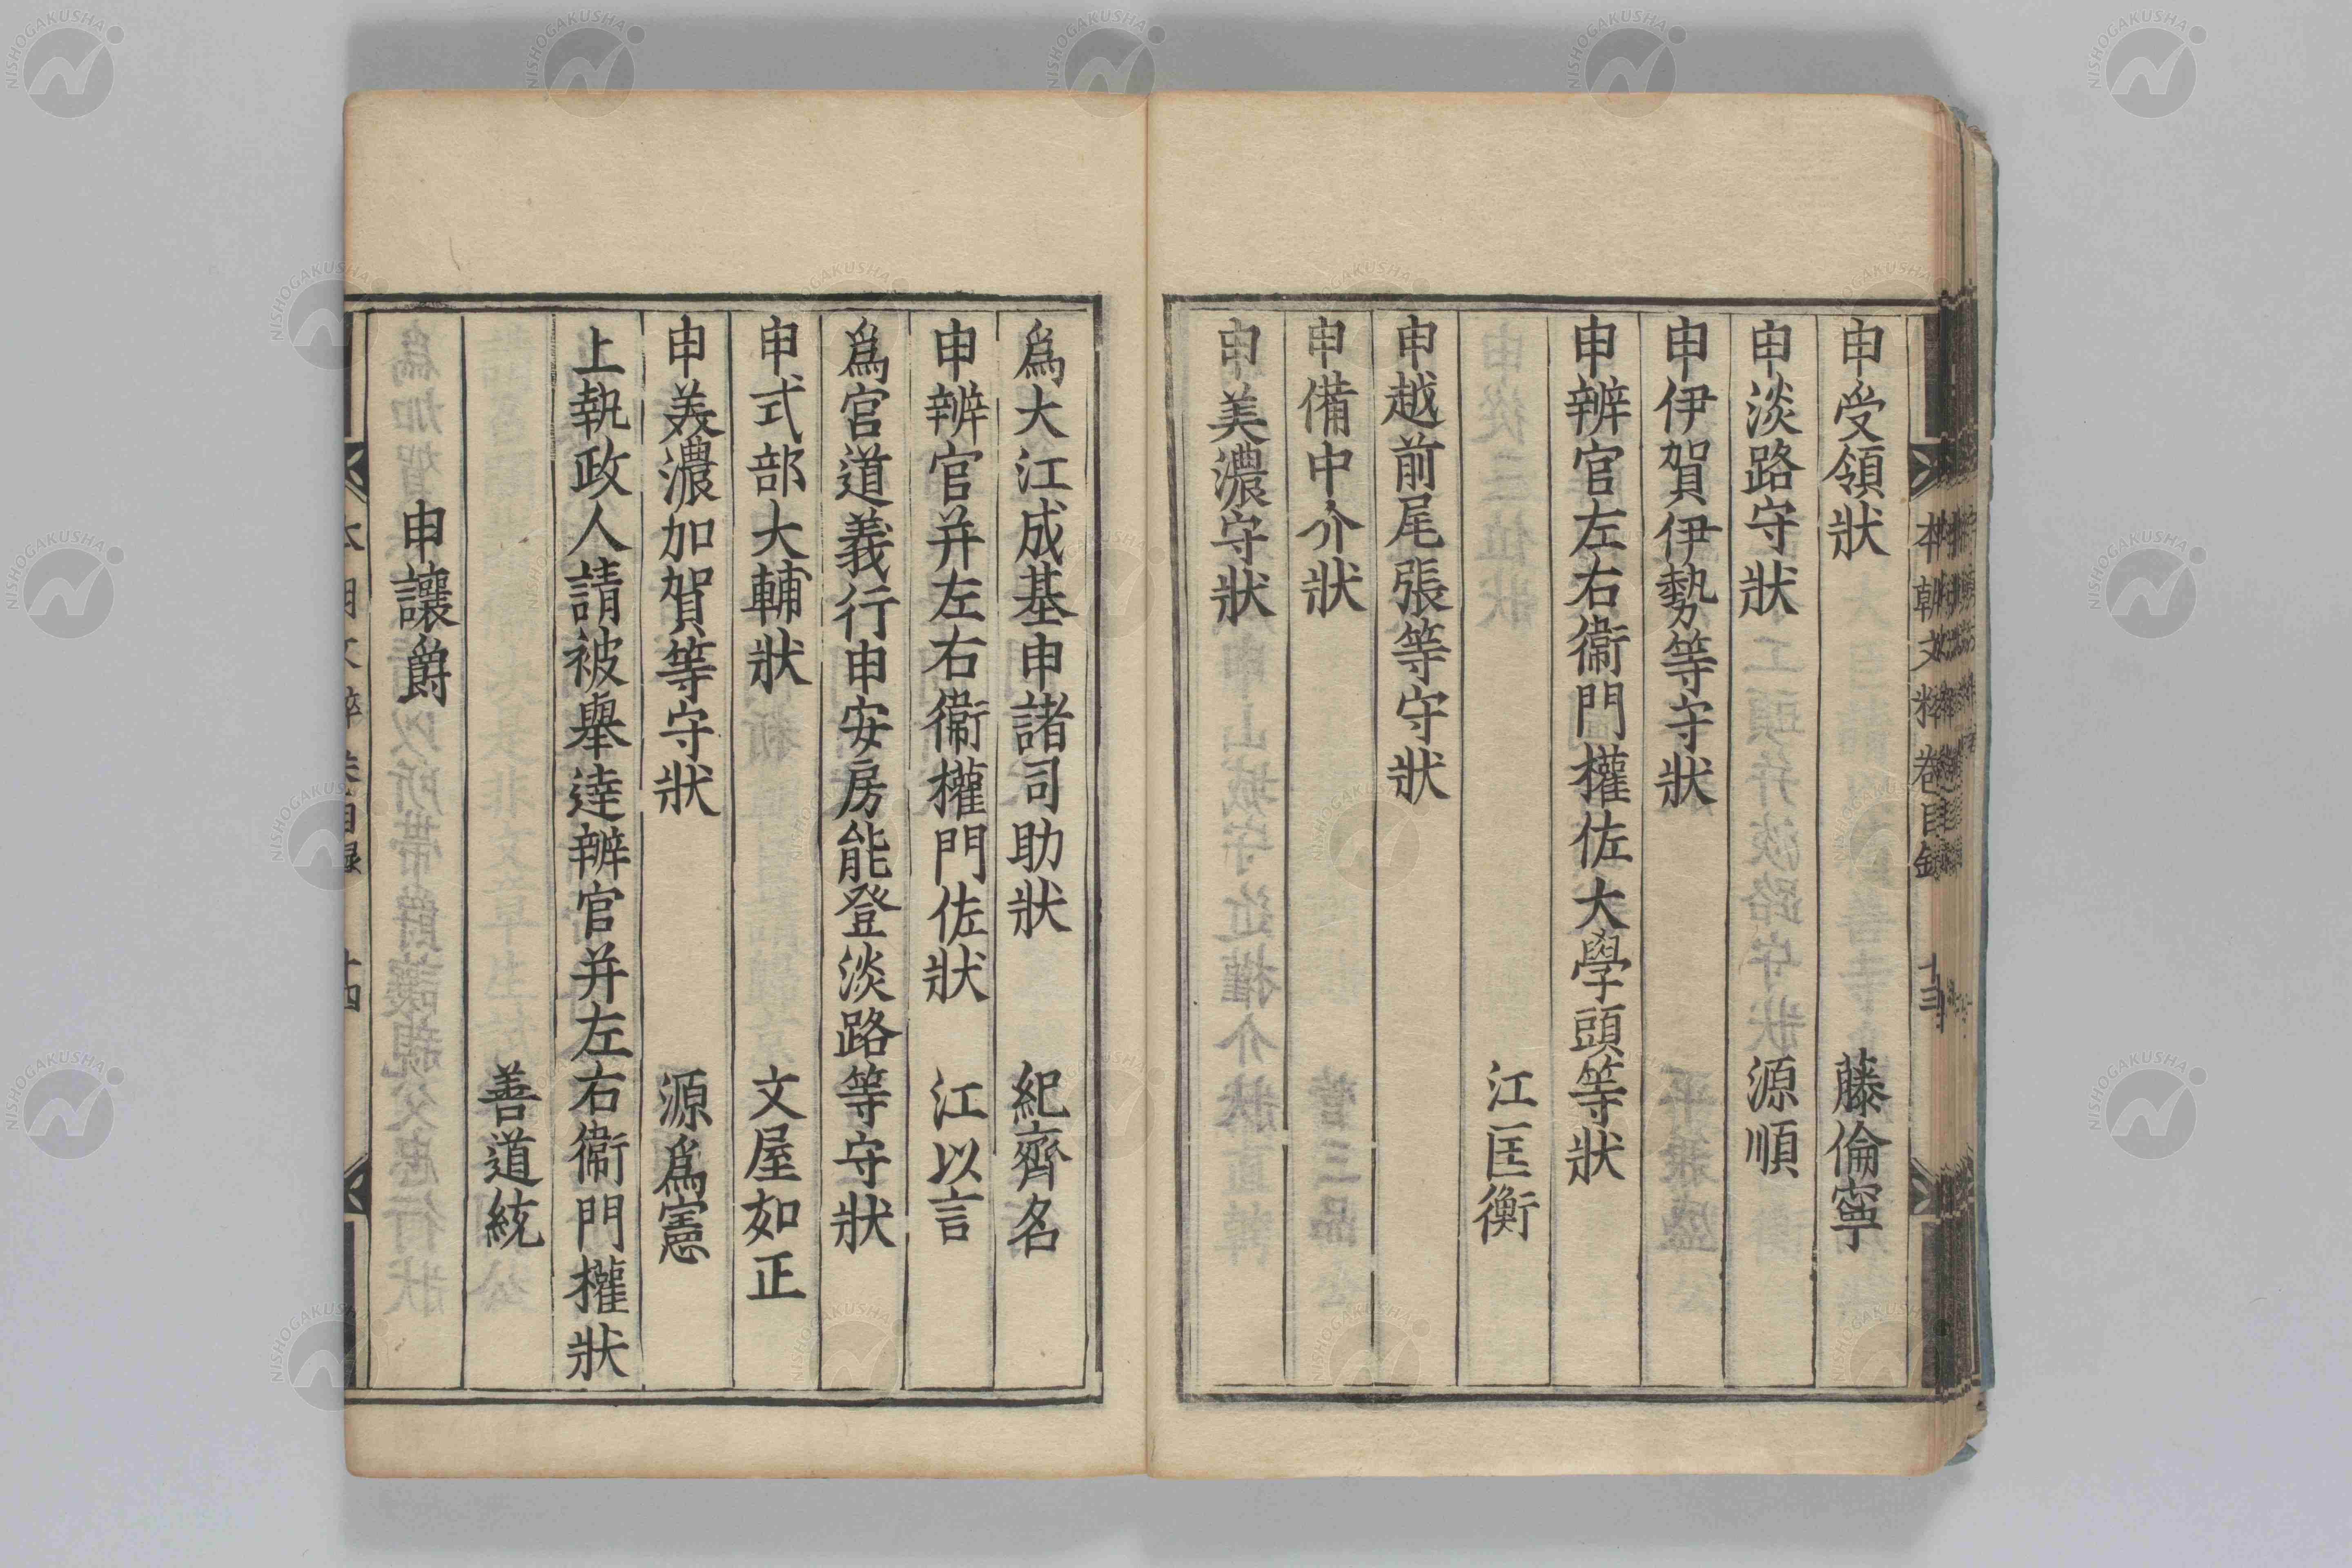 申受領狀　藤倫寧
申淡路守狀　源順
申伊賀伊勢等守狀
申辨官左右衞門權佐大學頭等狀
江匡衡
申越前尾張等守狀
申備中介狀
申美濃守狀
爲大江成基申諸司助狀　紀齊名
申辨官并左右衞權門佐狀　江以言
爲官道義行申安房能登淡路等守狀
申式部大輔狀　文屋如正
申美濃加賀等守狀　源爲憲
上執政人請被舉達辨官并左右衞門權狀
善道統
申讓爵
本朝文粹卷目錄　十三
NISHOGAKUSHA